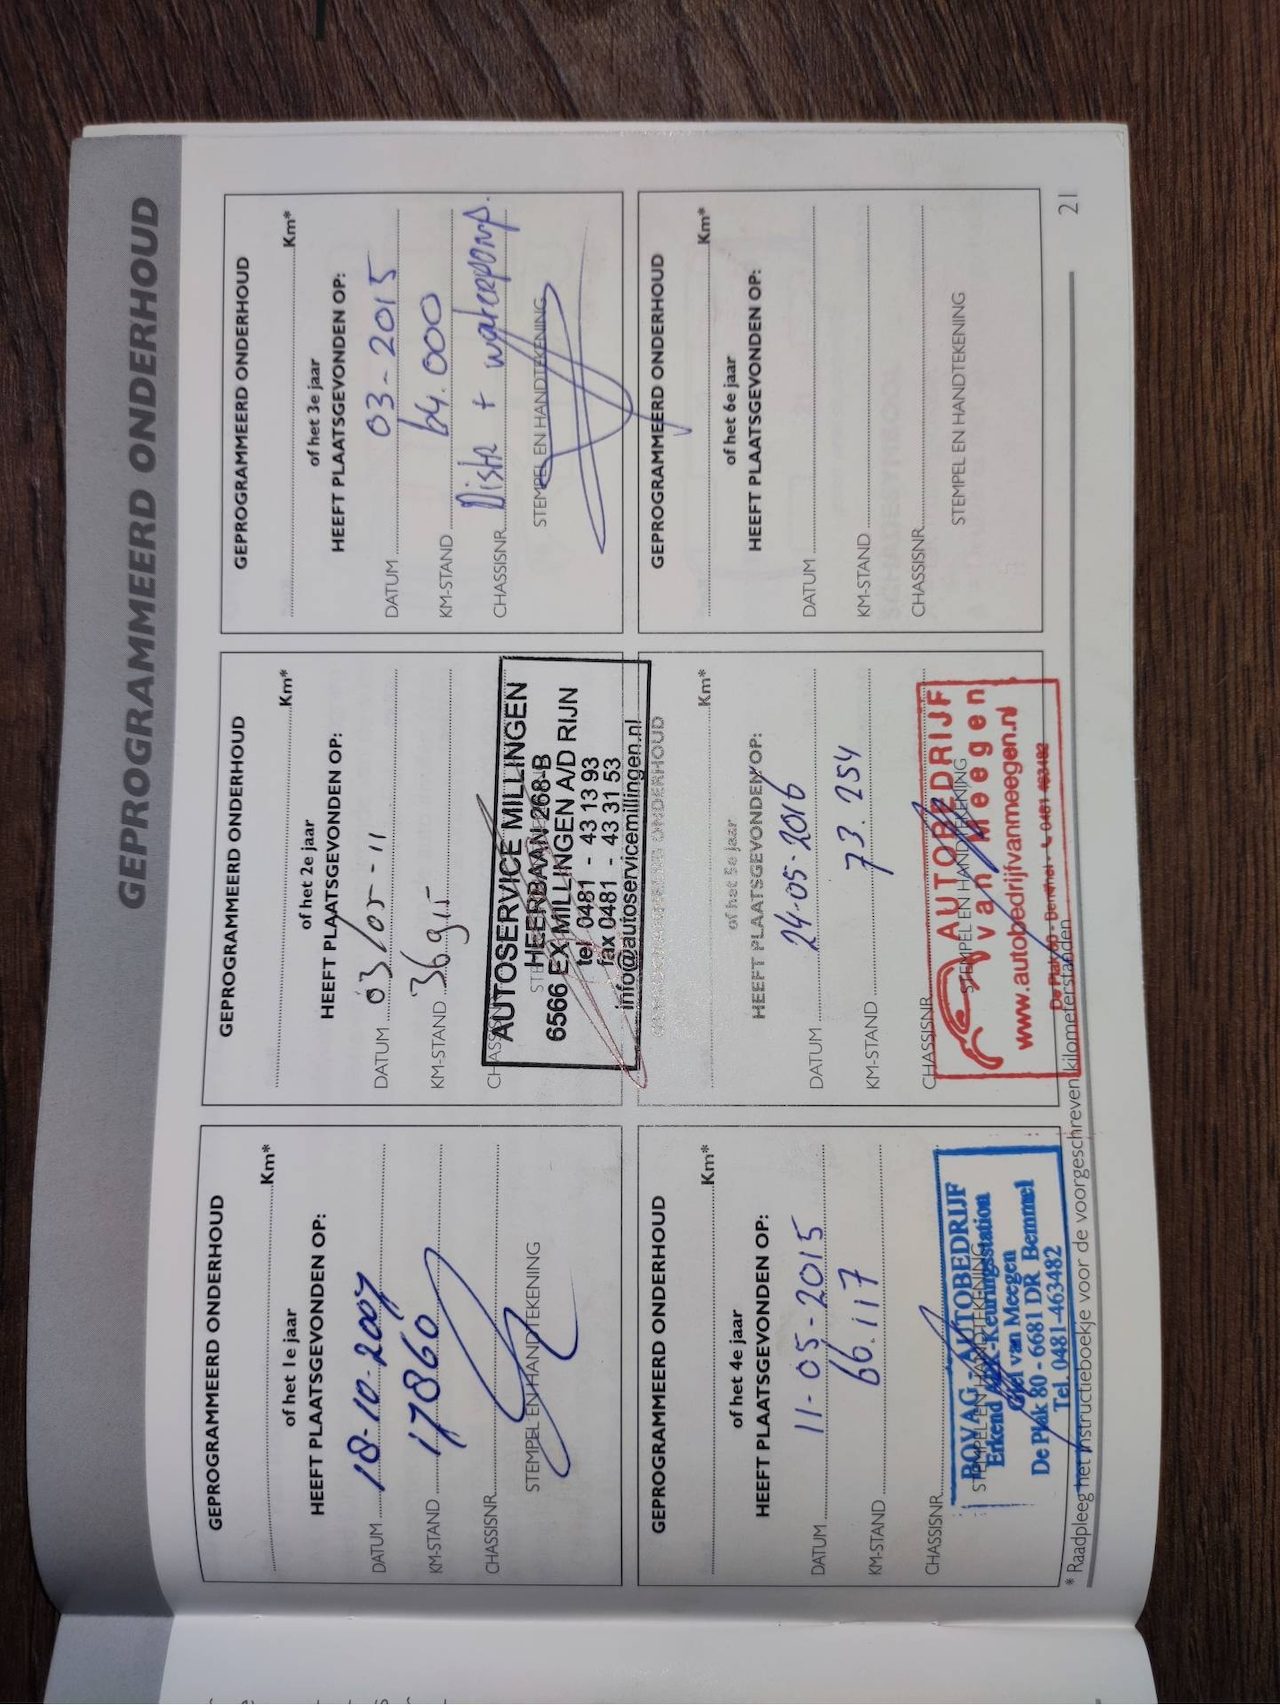 GEPROGRAMMEERD ONDERHOUD
GEPROGRAMMEERD ONDERHOUD
Km*
of het 1e jaar
HEEFT PLAATSGEVONDEN OP:
DATUM 18-10-2007
KM-STAND 17860
CHASSISNR.
STEMPEL EN HANDTEKENING
GEPROGRAMMEERD ONDERHOUD
Km*
of het 2e jaar
HEEFT PLAATSGEVONDEN OP:
DATUM 03/05-11
KM-STAND 36915
AUTOSERVICE MILLINGEN
HEERBAAN 268-B
6566 EX MILLINGEN A/D RIJN
tel 0481 - 43 13 93
fax 0481 - 43 31 53
info@autoservicemillingen.nl
GEPROGRAMMEERD ONDERHOUD
Km*
of het 3e jaar
HEEFT PLAATSGEVONDEN OP:
DATUM 03-2015
KM-STAND 64.000
CHASSISNR. + waterpomp.
STEMPEL EN HANDTEKENING
GEPROGRAMMEERD ONDERHOUD
Km*
of het 4e jaar
HEEFT PLAATSGEVONDEN OP:
DATUM 11-05-2015
KM-STAND 66.117
CHASSISNR.
STEMPEL EN HANDTEKENING
BOVAG - AUTOBEDRIJF
Erkend APK-Keuringsstation
Giel van Meegen
De Plak 80 - 6681 DR Bemmel
Tel. 0481-463482
GEPROGRAMMEERD ONDERHOUD
Km*
of het 5e jaar
HEEFT PLAATSGEVONDEN OP:
DATUM 24-05-2016
KM-STAND 73.254
CHASSISNR.
STEMPEL EN HANDTEKENING
AUTOBEDRIJF
van Meegen
www.autobedrijfvanmeegen.nl
De Plak 80 - Bemmel - 0481 463482
GEPROGRAMMEERD ONDERHOUD
Km*
of het 6e jaar
HEEFT PLAATSGEVONDEN OP:
DATUM
KM-STAND
CHASSISNR.
STEMPEL EN HANDTEKENING
* Raadpleeg het instructieboekje voor de voorgeschreven kilometerstanden
21